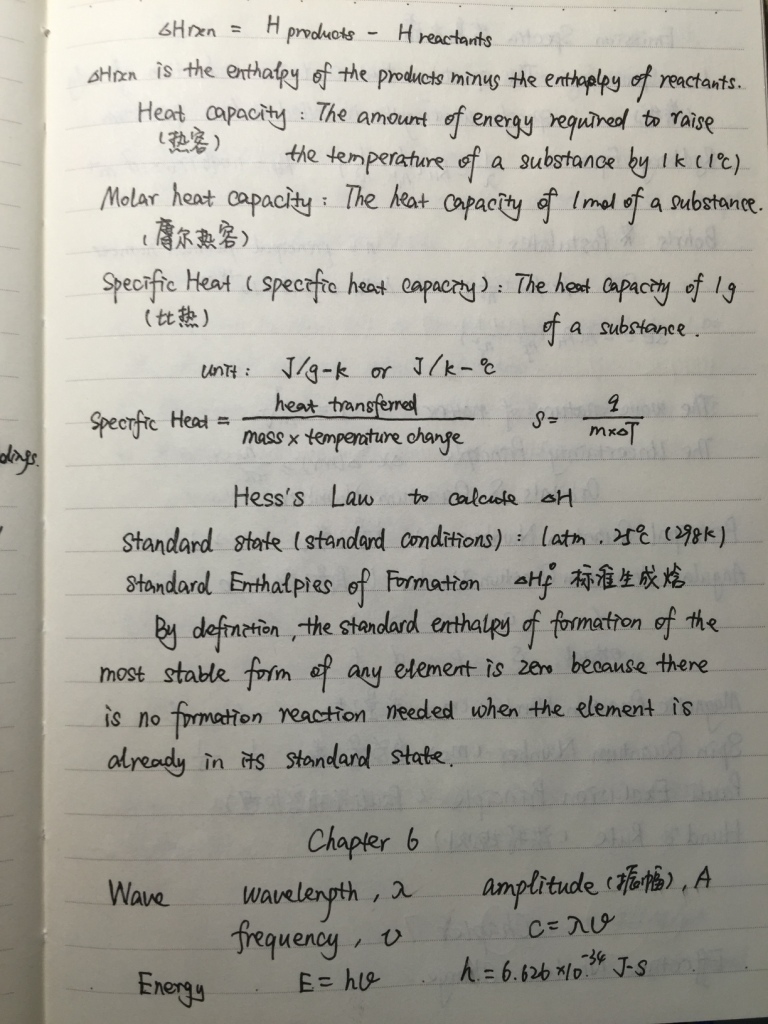 ΔHrxn = H products − H reactants
ΔHrxn is the enthalpy of the products minus the enthaplpy of reactants.
Heat capacity : The amount of energy required to raise
(热容)
the temperature of a substance by 1k (1℃)
Molar heat capacity : The heat capacity of 1mol of a substance.
(摩尔热容)
Specific Heat ( specific heat capacity) : The heat capacity of 1g
(比热)
of a substance.
unit : J/g-k or J/k-℃
Specific Heat = heat transferred / mass x temperature change S = q / m×ΔT
dings.
Hess's Law to calcute ΔH
Standard state (standard conditions) : 1atm . 25℃ (298k)
Standard Enthalpies of Formation ΔHf° 标准生成焓
By definition , the standard enthalpy of formation of the
most stable form of any element is zero because there
is no formation reaction needed when the element is
already in its standard state.
Chapter 6
Wave wavelength , λ amplitude (振幅) , A
frequency , υ C = λυ
Energy E = hυ h = 6.626 ×10⁻³⁴ J-S